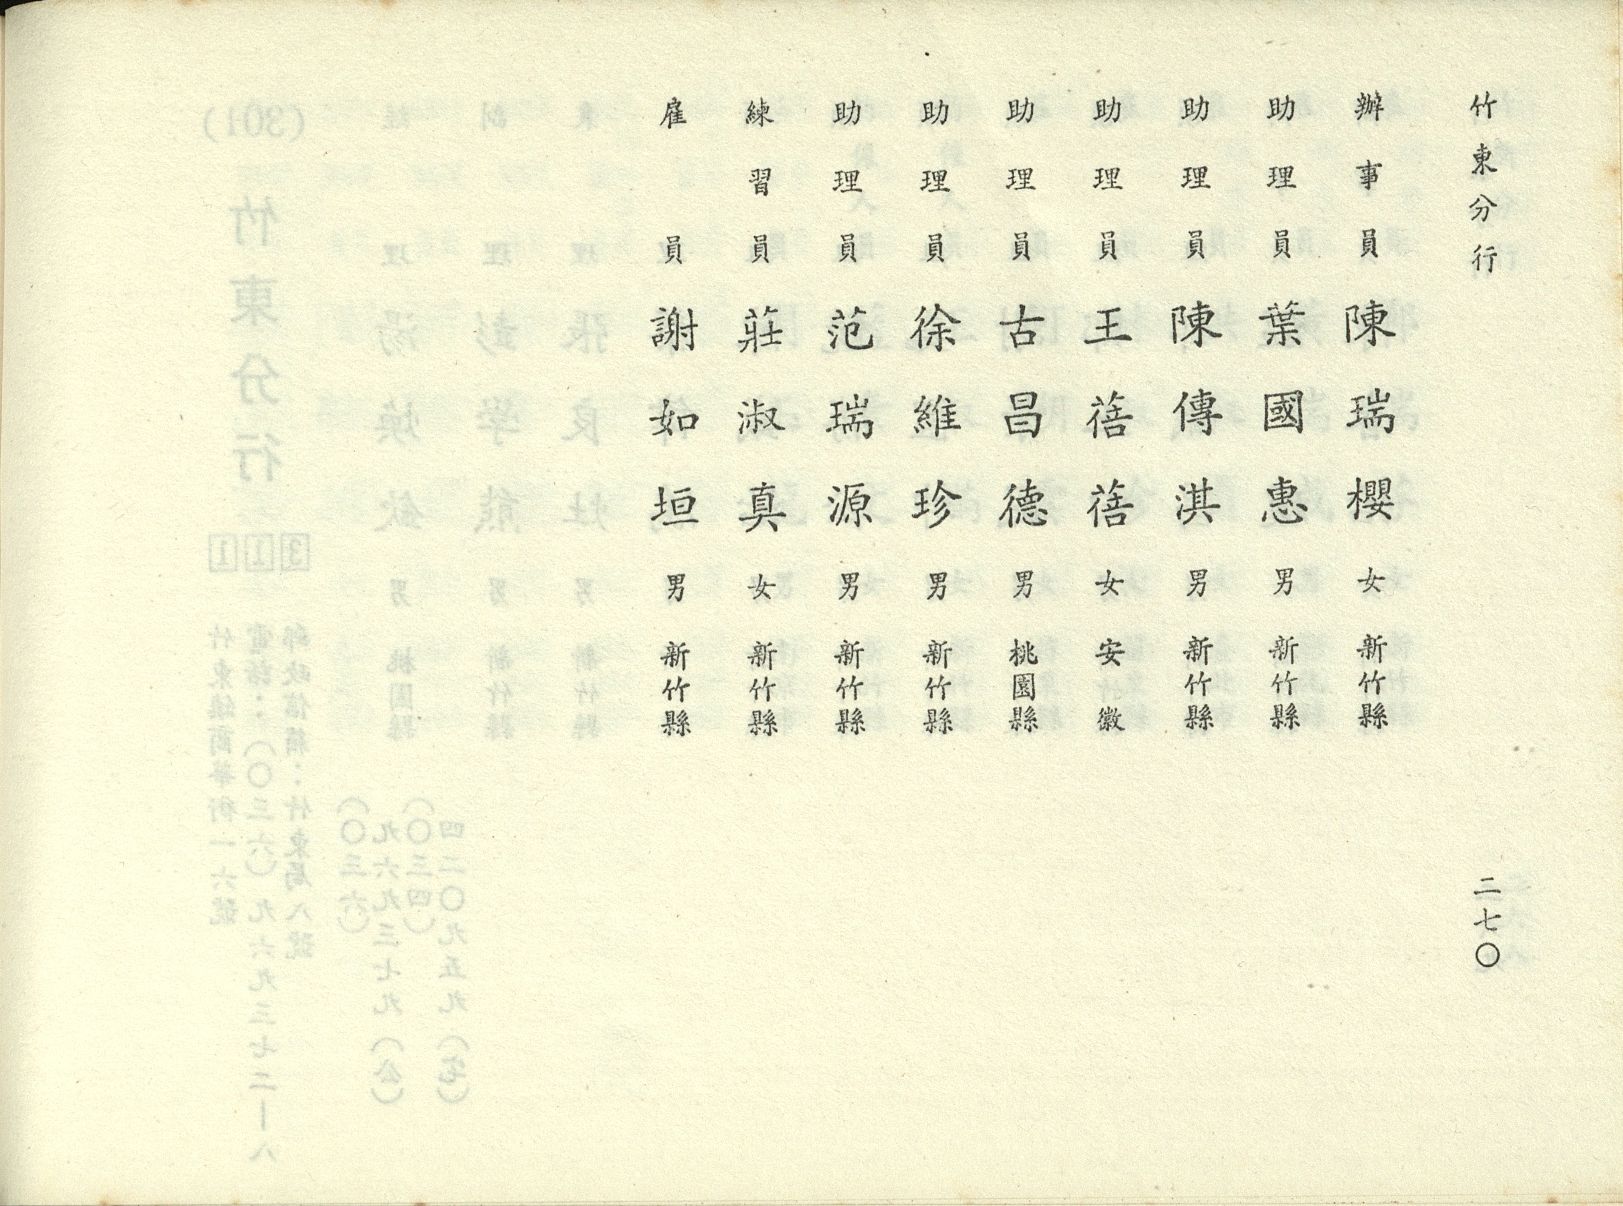 竹東分行
辦事員 陳瑞櫻 女 新竹縣
助理員 葉國惠 男 新竹縣
助理員 陳傳淇 男 新竹縣
助理員 王蓓蓓 女 安徽
助理員 古昌德 男 桃園縣
助理員 徐維珍 男 新竹縣
助理員 范瑞源 男 新竹縣
練習員 莊淑真 女 新竹縣
雇員 謝如垣 男 新竹縣
二七〇